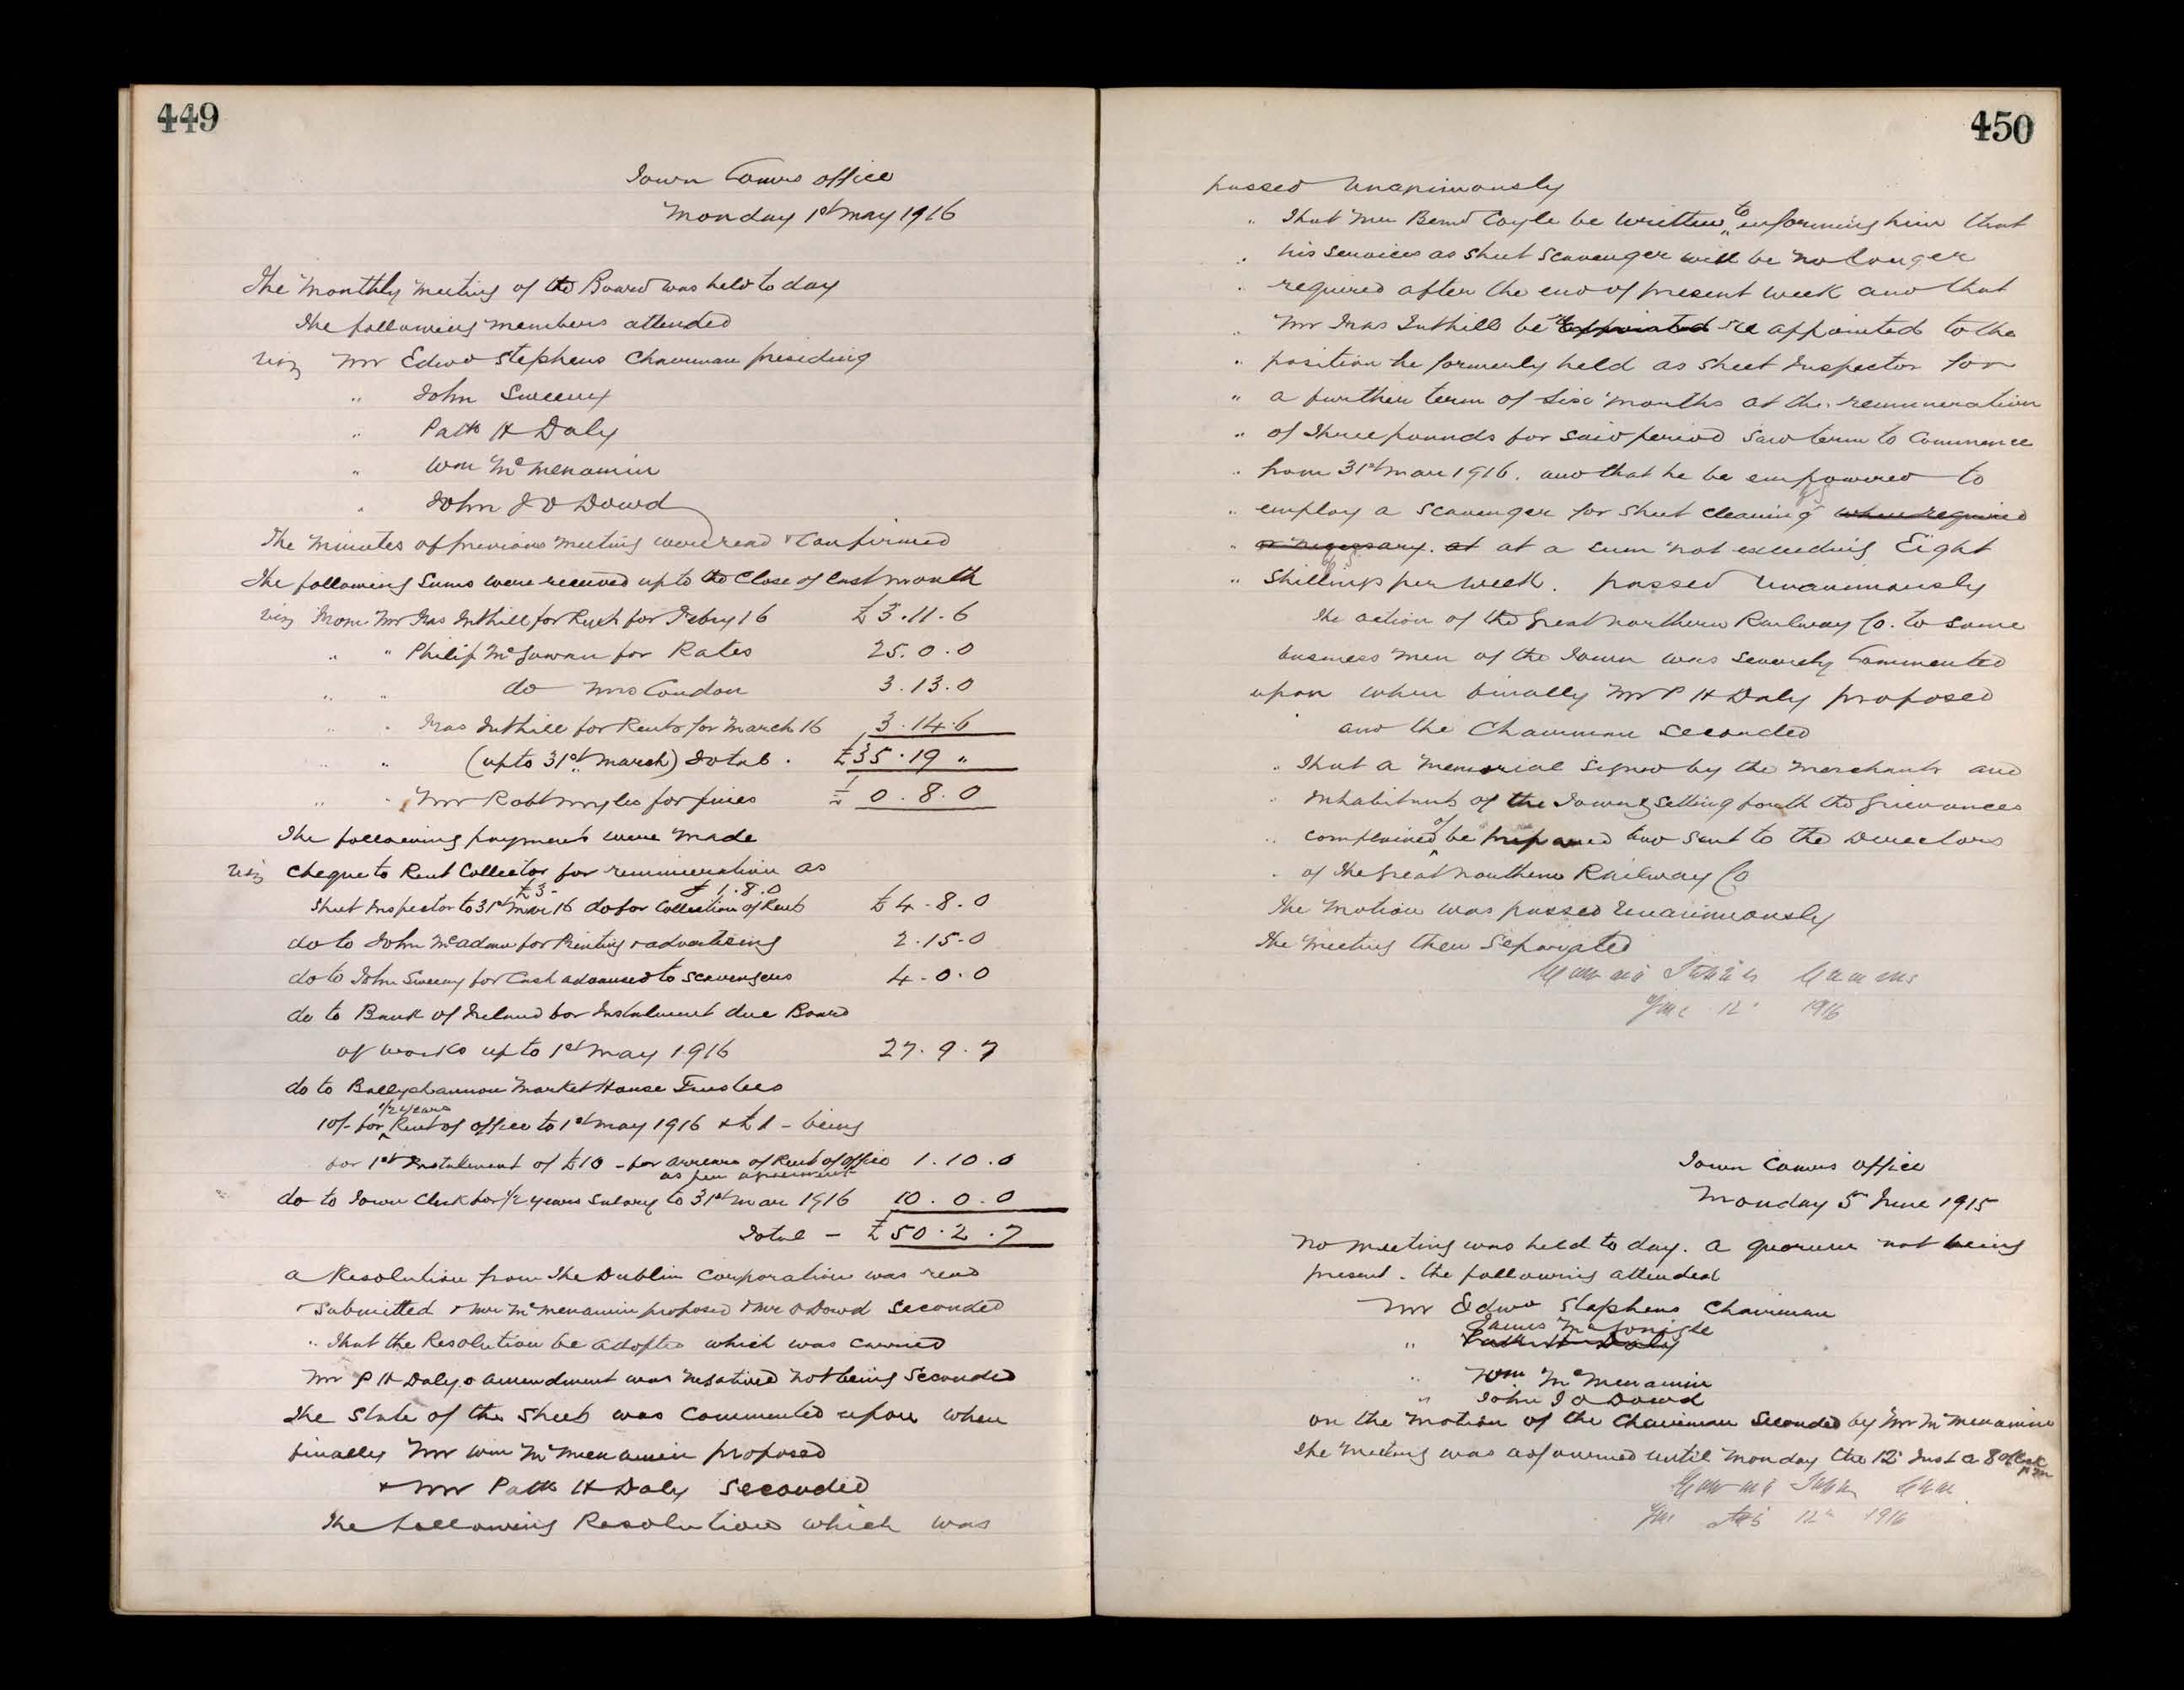 449
Town Comrs office
Monday 1st May 1916
The Monthly Meeting of the Board was held to day
The following members attended
viz Mr Edwd Stephens Chairman presiding
" John Sweeny
" Patk H Daly
" Wm McMenamin
" John J O Dowd
The Minutes of previous Meeting were read & Confirmed
The following Sums were received up to the Close of last month
viz From Mr Fras Tuthill for Rent for Febry 16 £3.11.6
" " Philip McGowan for Rates 25.0.0
" " do Mrs Condon 3.13.0
" " Fras Tuthill for Rents for March 16 3.14.6
" " (up to 31st March) Total . £35.19 "
" " Mr Robt Myles for fines £0.8.0
The following payments were made
viz Cheque to Rent Collector for remuneration as
Street Inspector to 31st Mar 16 £3- do for Collection of Rents £1.8.0 £4.8.0
do to John McAdam for Printing & advertising 2.15.0
do to John Sweeny for Cash advanced to Scavengers 4.0.0
do to Bank of Ireland for Instalment due Board
of Works up to 1st May 1916 27.9.7
do to Ballyshannon Market House Trustees
10/- for 1/2 years Rent of office to 1st May 1916 & £1 - being
for 1st Instalment of £10 - for arrears of Rent of office 1.10.0
as per agreement
do to Town Clerk for 1/2 years Salary to 31st Mar 1916 10.0.0
Total - £50.2.7
a Resolution from The Dublin Corporation was read
& Submitted & Mr McMenamin proposed & Mr O Dowd Seconded
" That the Resolution be adopted which was carried
Mr P H Daly's amendment was negatived not being Seconded
The State of the Streets was Commented upon when
finally Mr Wm McMenamin proposed
& Mr Patk H Daly Seconded
The following Resolution which was
450
passed Unanimously
" That Mr Bernd Coyle be written to informing him that
" his services as Street Scavenger will be no longer
" required after the end of present week and that
" Mr Fras Tuthill be re appointed re appointed to the
" position he formerly held as Street Inspector for
" a further term of Six months at the remuneration
" of Three pounds for said period said term to Commence
" from 31st Mar 1916. and that he be empowered to
" employ a Scavenger for Street Cleaning when required
" or necessary. at at a sum not exceeding Eight
" Shillings per week. passed Unanimously
The action of the Great Northern Railway Co. to some
business men of the Town was severely Commented
upon when finally Mr P H Daly proposed
and the Chairman Seconded
" That a Memorial Signed by the Merchants and
" Inhabitants of the Town setting forth the Grievances
" complained of be prepared and sent to the Directors
" of The Great Northern Railway Co
The Motion was passed Unanimously
The Meeting then Separated
12 1916
Town Comrs office
Monday 5 June 1915
No meeting was held to day. a quorum not being
present. the following attended
Mr Edwd Stephens Chairman
James McGonigle
" Patk H Daly
" Wm McMenamin
" John J O Dowd
on the motion of the Chairman Seconded by Mr McMenamin
The Meeting was adjourned until Monday the 12 Inst a 8 oClock
pm
12th 1916